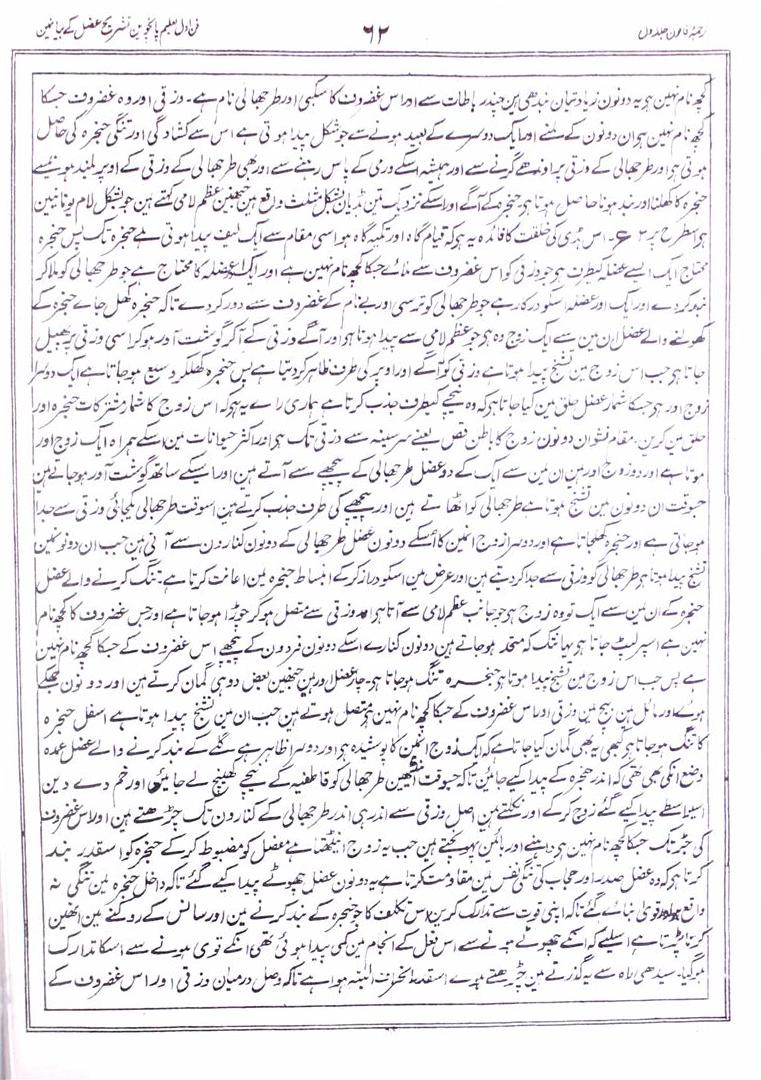 ترجمۂ قانون جلد اول
۶۲
فن اول تعلیم پانچوین تشریح عضل کے بیانمین
کچھ نام نہین ہر یہ دونون زیادتیان بندھی ہین چند رباطات سے اور اس غضروف کا مکبی اور طرجھالی نام ہے۔ درقی اور وہ غضروف جسکا
کچھ نام نہین ہر ان دونون کے ملنے اور ایک دوسرے کے بعید ہونے سے جو شکل پیدا ہوتی ہے اس سے کشادگی اور تنگی حنجرہ کی حاصل
ہوتی ہر اور طرجھالی کے درقی پر اوندھے گرنے سے اور ہمیشہ اسکے درمی کے پاس رہنے سے اور کبھی طرجھالی کے درقی کے اوپر بلند ہونیسے
حنجرہ کا کھلنا اور بند ہونا حاصل ہوتا ہر حنجرہ کے آگے اور اسکے نزدیک تین ہڈیان بشکل مثلث واقع ہین جنھین عظم لامی کہتے ہین جو بشکل لام یونانیین
ہر اسطرح پر اس ہڈی کی خلقت کا فائدہ یہ ہر کہ قیام گاہ اور تکیہ گاہ ہو اسی مقام سے ایک لیف پیدا ہوتی ہے حنجرہ تک پس حنجرہ
محتاج ایک ایسے عضلہ کیطرف ہر جو درقی کو اس غضروف سے ملائے جسکا کچھ نام نہین ہے اور ایک اور عضلہ کا محتاج ہے جو طرجھالی کو ملا کر
بند کر دے اور ایک اور عضلہ اسکو درکار ہے جو طرجھالی کو ترسی اور بے نام کے غضروف سے دور کر دے تاکہ حنجرہ کھل جاے حنجرہ کے
کھولنے والے عضل ان مین سے ایک زوج وہ ہر جو عظم لامی سے پیدا ہوتا ہر اور آگے درقی کے آکر گوشت آور ہو کر اسی درقی پر پھیل
جاتا ہر جب اس زوج مین تشنج پیدا ہوتا ہے درقی کو آگے اور اوپر کی طرف ظاہر کر دیتا ہے پس حنجرہ کھلکر وسیع ہو جاتا ہے ایک دوسرا
زوج اور ہر جسکا شمار عضل حلق مین کیا جاتا ہر کہ وہ نیچے کیطرف جذب کرتا ہے ہماری راے یہ ہر کہ اس زوج کا شمار مشترکات حنجرہ اور
حلق مین کرین۔ مقام نشوان دونون زوج کا باطن قص یعنے سر سینہ سے درقی تک ہر اور اکثر حیوانات مین اسکے ہمراہ ایک زوج اور
ہوتا ہے اور دو زوج اور ہین ان مین سے ایک کے دو عضل طرجھالی کے پیچھے سے آتے ہین اور اسکے ساتھ گوشت آور ہو جاتے ہین
جسوقت ان دونون مین تشنج ہوتا ہے طرجھالی کو اٹھاتے ہین اور پیچھے کی طرف جذب کرتے ہین اسوقت طرجھالی یکجائی درقی سے جدا
ہوجاتی ہے اور حنجرہ کھلجاتا ہے اور دوسرا زوج انمین کا اسکے دونون عضل طرجھالی کے دونون کنارون سے آتی ہین جب ان دونونمین
تشنج پیدا ہوتا ہر طرجھالی کو درقی سے جدا کر دیتے ہین اور عرض مین اسکو دراز کر کے انبساط حنجرہ مین اعانت کرتا ہے۔ تنگ کرنے والے عضل
حنجرہ کے ان مین سے ایک تو وہ زوج ہر جو جانب عظم لامی سے آتا ہر اور درقی سے متصل ہو کر چوڑا ہو جاتا ہے اور جس غضروف کا کچھ نام
نہین ہے اسپر لپٹ جاتا ہر یہانتک کہ متحد ہو جاتے ہین دونون کنارے اسکے دونون فردون کے پیچھے اس غضروف کے جسکا کچھ نام نہین
ہے پس جب اس زوج مین تشنج پیدا ہوتا ہر حنجرہ تنگ ہو جاتا ہر۔ چار عضل اور ہین جنھین بعض دو ہی گمان کرتے ہین اور دونون جھکے
ہوے اور مائل ہین بیچ مین درقی اور اس غضروف کے جسکا کچھ نام نہین ہر متصل ہوتے ہین جب ان مین تشنج پیدا ہوتا ہے اسفل حنجرہ
کا تنگ ہو جاتا ہر کبھی یہ بھی گمان کیا جاتا ہے کہ ایک زوج انمین کا پوشیدہ ہر اور دوسرا ظاہر ہے گلے کے بند کرنے والے عضل عمدہ
وضع انکی بھی تھی کہ اندر حنجرہ کے پیدا کیے جائین تاکہ جسوقت اٹھین طرجھالی کو قاطفیہ کے نیچے کھینچ لے جائین اور خم دے دین
اسیواسطے پیدا کیے گئے زوج کر کے اور نکلتے ہین اصل درقی سے اندر ہی اندر طرجھالی کے کنارون تک چڑھتے ہین اور اس غضروف
کی جڑ تک جسکا کچھ نام نہین ہر داہنے اور بائین پہونچتے ہین جب یہ زوج اینٹھتا ہے مفصل کو مضبوط کر کے حنجرہ کو اسقدر بند
کرتا ہر کہ وہ عضل صدر اور حجاب کی تنگی نفس مین مقاومت کرتا ہے یہ دونون عضل چھوٹے پیدا کیے گئے تاکہ داخل حنجرہ مین تنگی نہ
واقع ہو اور قوی بنائے گئے تاکہ اپنی قوت سے تدارک کرین اس تکلف کا جو حنجرہ کے بند کرنے مین اور سانس کے روکنے مین انھین
کرنا پڑتا ہے اسلیے کہ انکے چھوٹے ہونے سے اس فعل کے انجام مین کمی پیدا ہوئی تھی انکے قوی ہونے سے اسکا تدارک
ہو گیا۔ سیدھی راہ سے یہ گذرتے ہین چڑھتے ہوے اسقدر انحراف البتہ ہوا ہے تاکہ وصل درمیان درقی اور اس غضروف کے